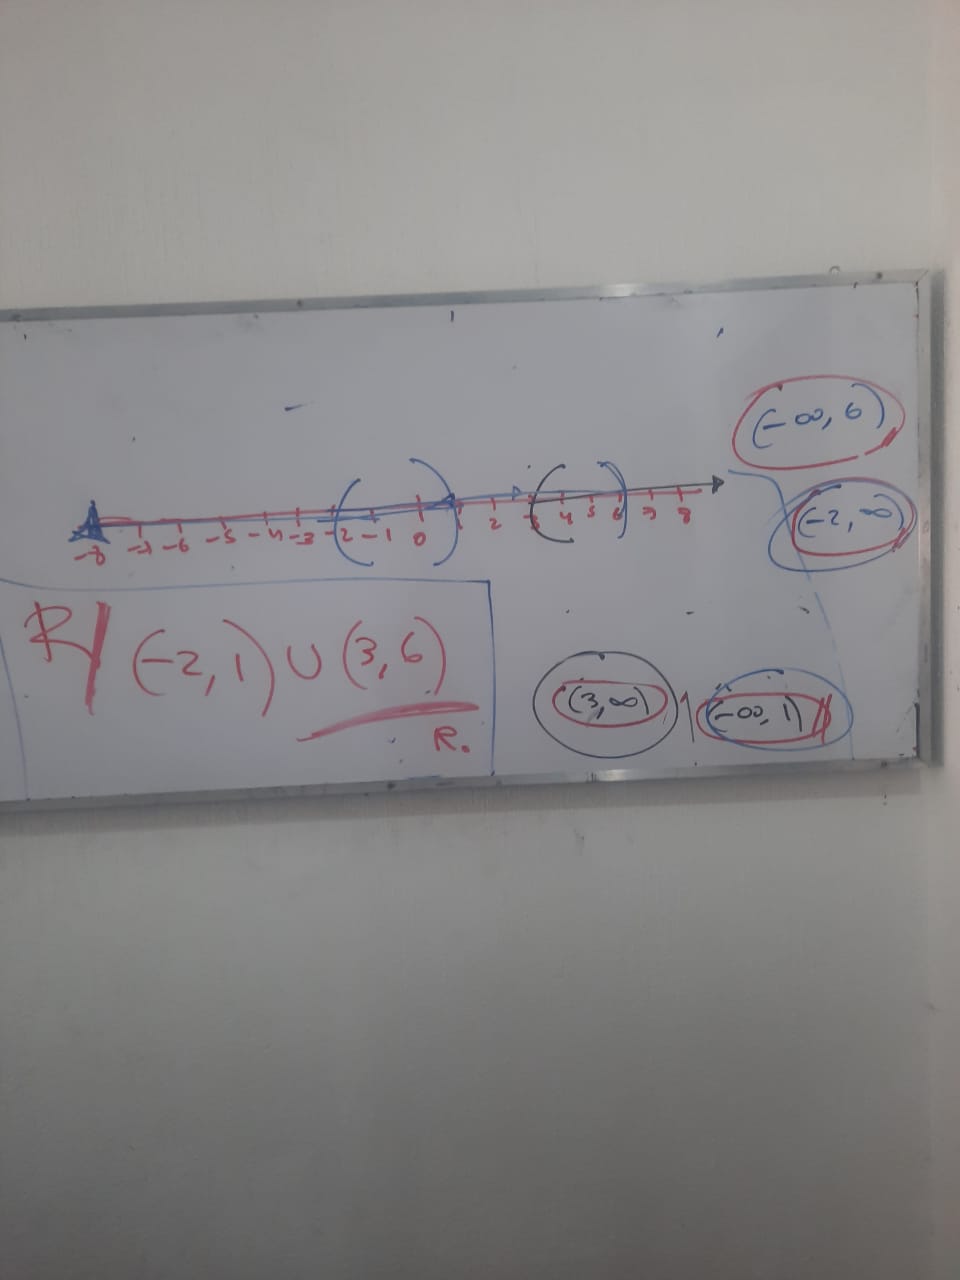 (-∞, 6)
(-2, ∞)
-8 -7 -6 -5 -4 -3 -2 -1 0 2 3 4 5 6 7 8
R/ (-2, 1) ∪ (3, 6)
R.
(3, ∞) (-∞, 1)